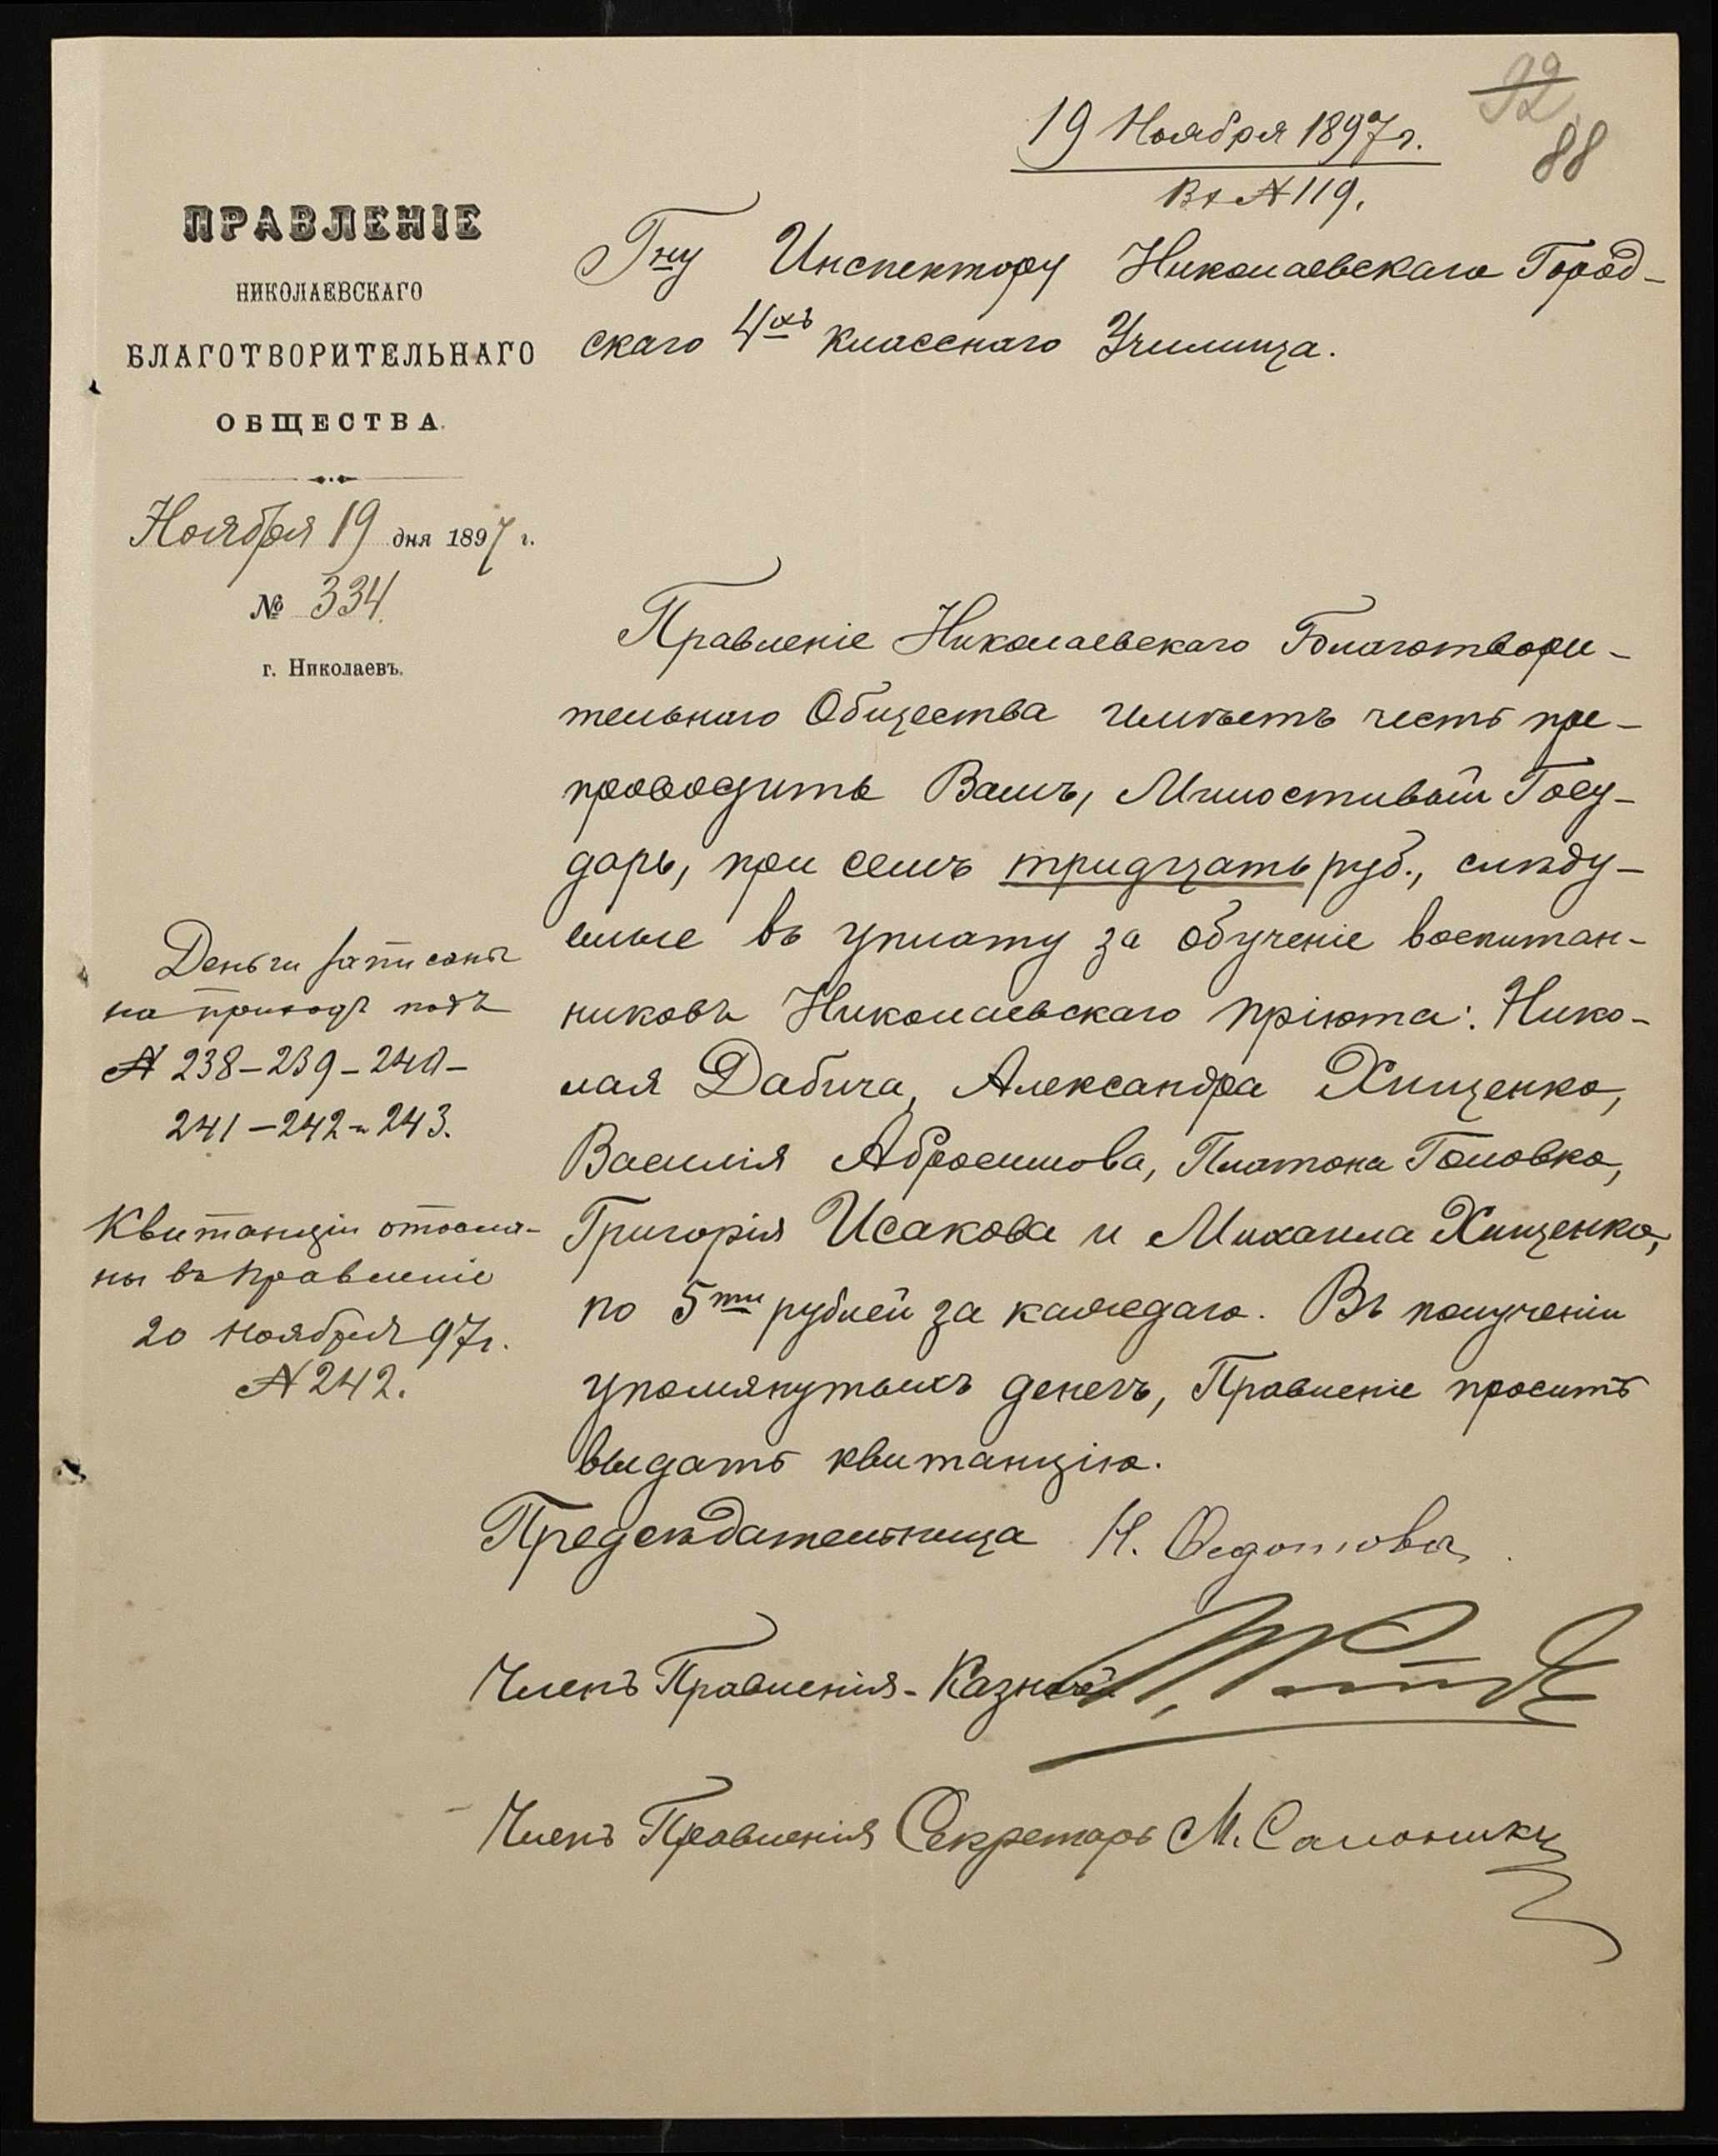 92
88
19 Ноября 1897 г.
Вх № 119.
ПРАВЛЕНІЕ
НИКОЛАЕВСКАГО
БЛАГОТВОРИТЕЛЬНАГО
ОБЩЕСТВА.
Ноября 19 дня 1897 г.
№ 334.
г. Николаевъ.
Гну Инспектору Николаевскаго Город-
скаго 4хъ класснаго Училища.
Правленіе Николаевскаго Благотвори-
тельнаго Общества имѣетъ честь пре-
проводить Вамъ, Милостивый Госу-
дарь, при семъ тридцать руб., слѣду-
емые въ уплату за обученіе воспитан-
никовъ Николаевскаго пріюта: Нико-
лая Дабича, Александра Хищенко,
Василія Абросимова, Платона Головко,
Григорія Исакова и Михаила Хищенко,
по 5ти рублей за каждаго. Въ полученіи
упомянутыхъ денегъ, Правленіе проситъ
выдать квитанцію.
Деньги записаны
на приходъ подъ
№ 238-239-240-
241-242-243.
Квитанціи отосла-
ны въ Правленіе
20 ноября 97 г.
№ 242.
Предсѣдательница Н. Федотова
Членъ Правленія-Казначей
Членъ Правленія Секретарь М.